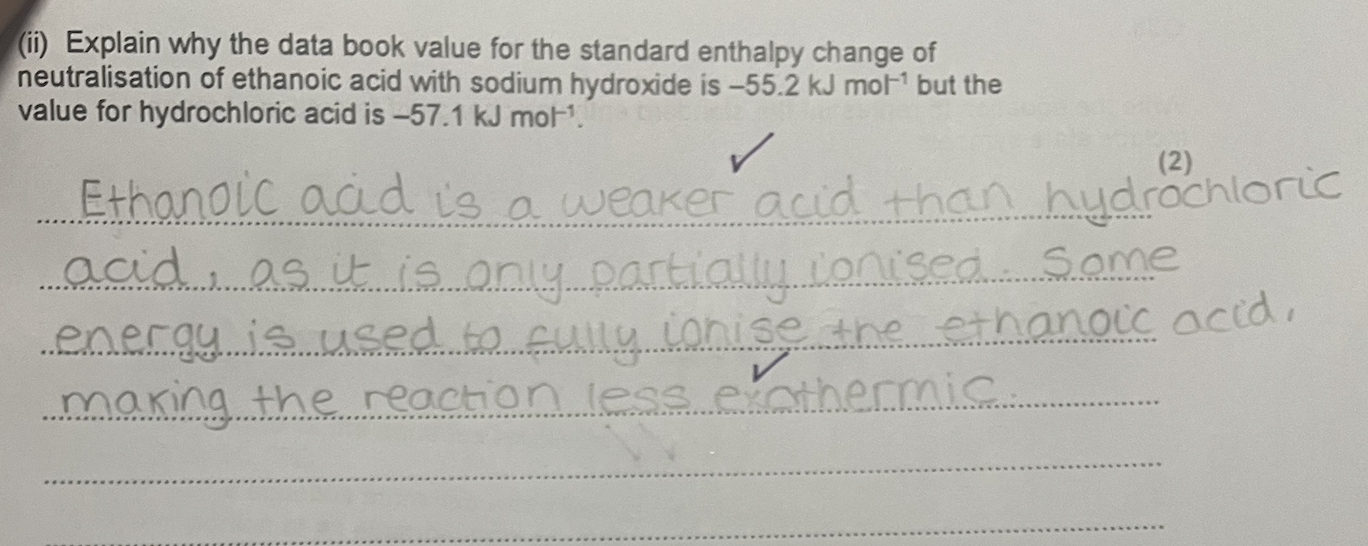 (ii) Explain why the data book value for the standard enthalpy change of
neutralisation of ethanoic acid with sodium hydroxide is –55.2 kJ mol⁻¹ but the
value for hydrochloric acid is –57.1 kJ mol⁻¹.
(2)
Ethanoic acid is a weaker acid than hydrochloric
acid, as it is only partially ionised. Some
energy is used to fully ionise the ethanoic acid,
making the reaction less exothermic.